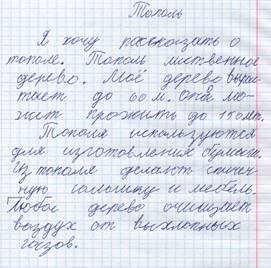 Тополь
Я хочу рассказать о
тополе. Тополь лиственное
дерево. Моё дерево вырас
тает до 60 м. Оно мо-
жит прожить до 150 лет.
Тополя используются
для изготовления бумаги.
Из тополя делают спичеч
ную соломку и мебель.
Любое дерево очищает
воздух от выхлопных
газов.